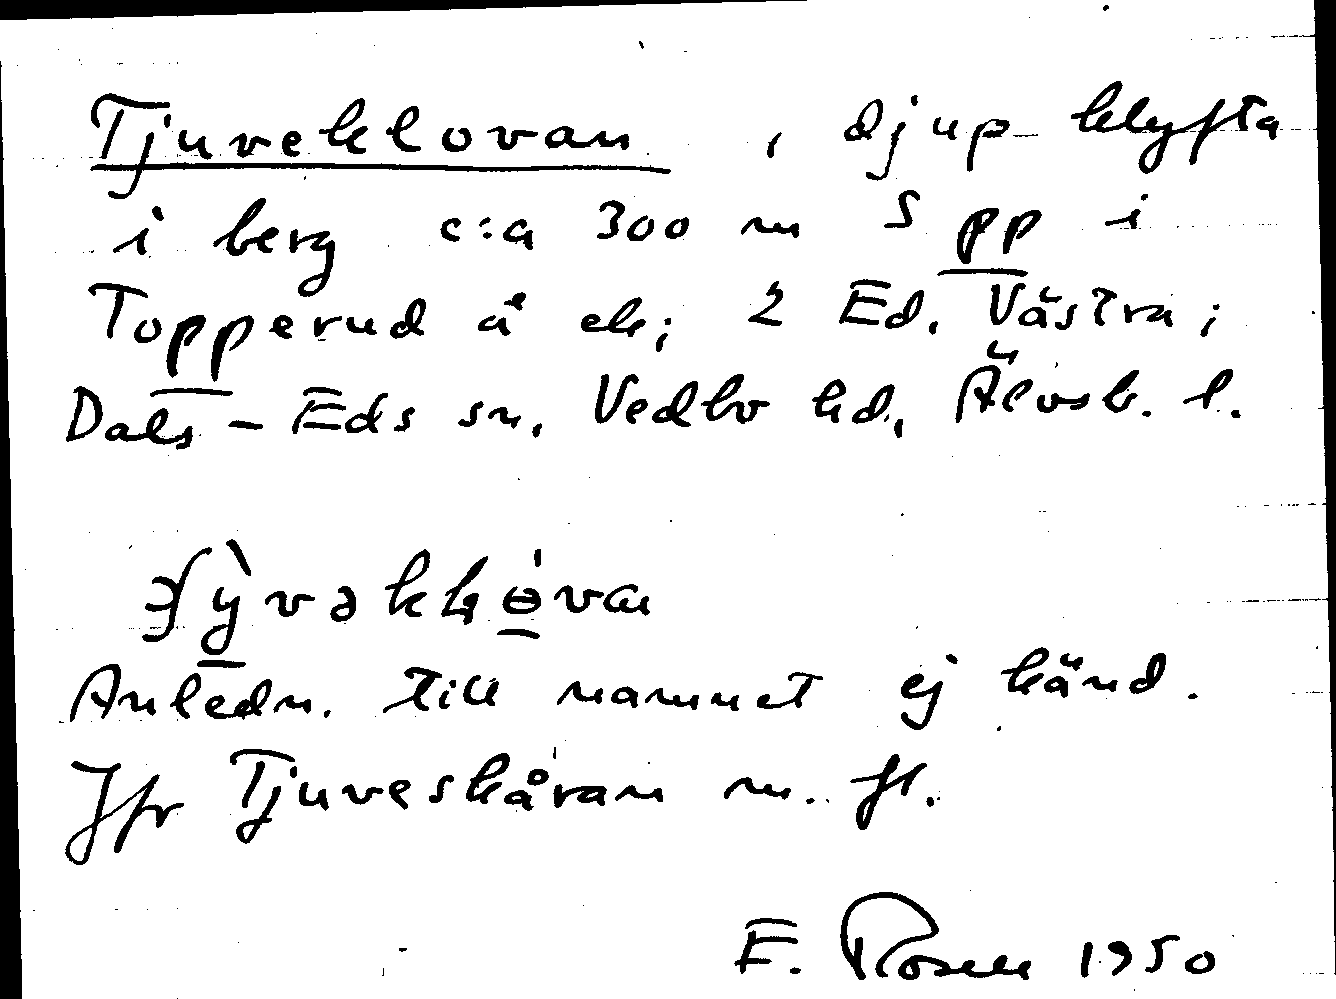 Tjuveklovan, djup klyfta
i berg c:a 300 m S pp i
Topperud å ek; 2 Ed, Västra;
Dals-Eds sn, Vedbo hd, Älvsb. l.
Anledn. till namnet ej känd.
Jfr Tjuveskåran m. fl.
E. Rosell 1950